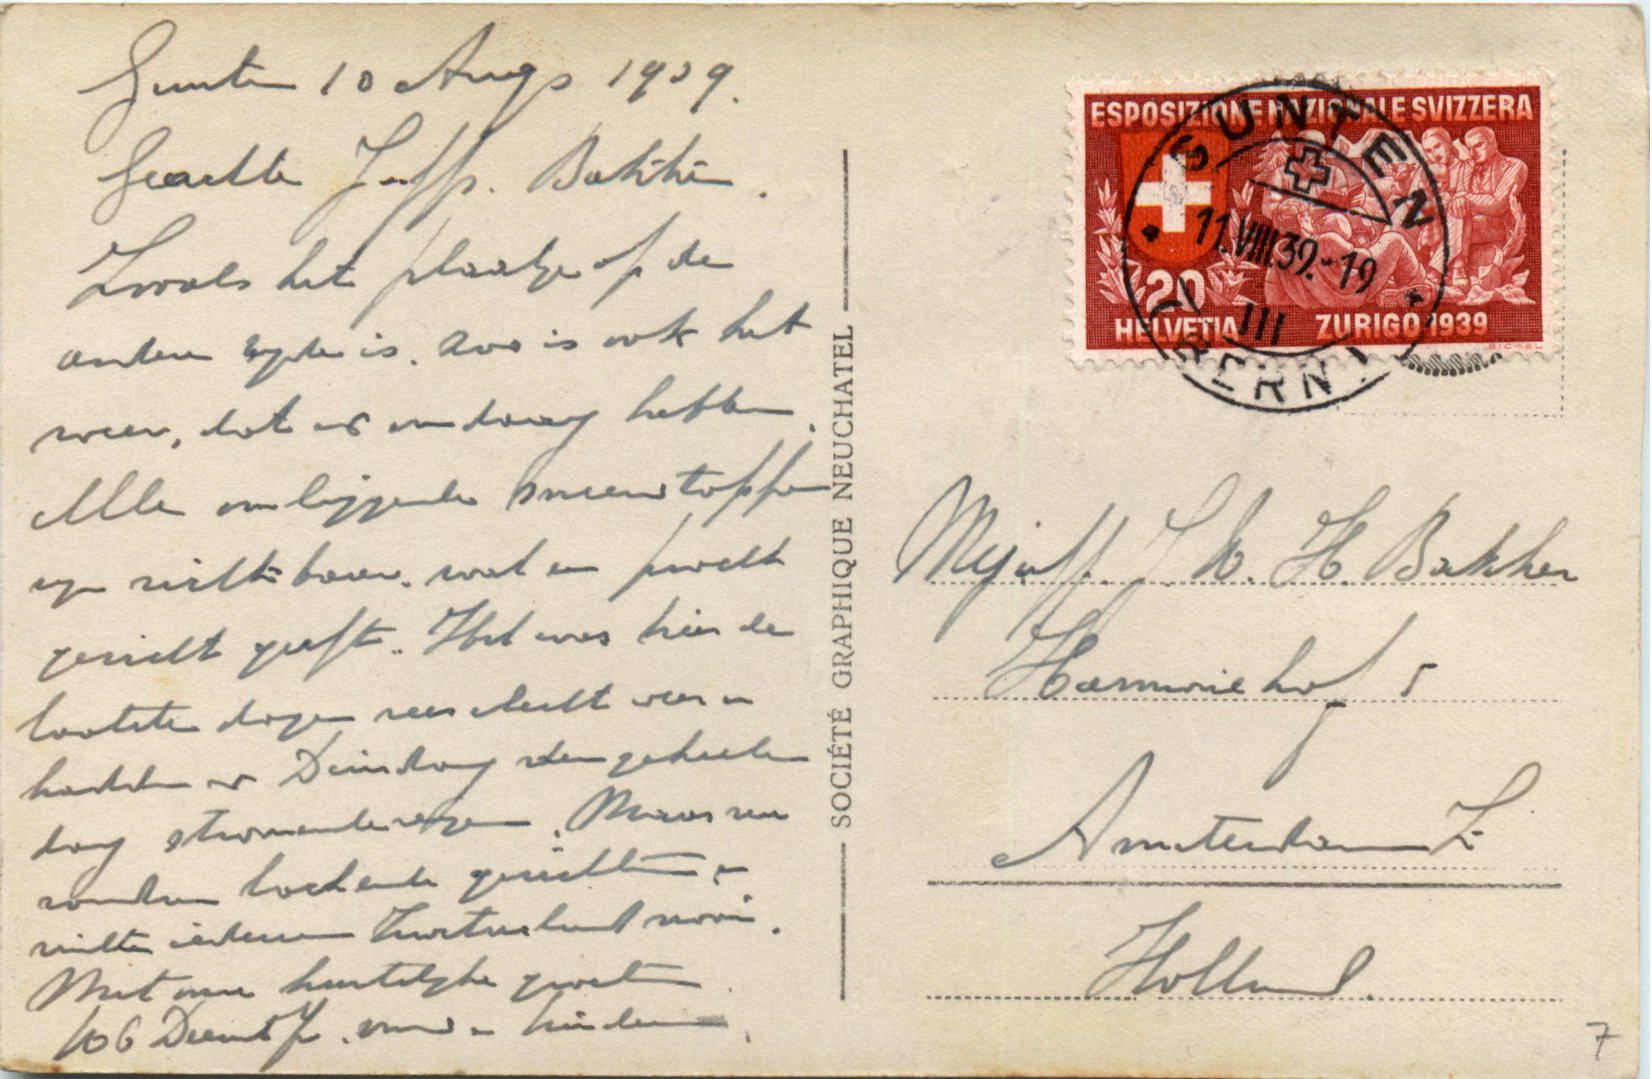 Gunten 10 Augs 1939.
Geachte Juffr. Bakker.
Zooals het plaatje op de
andere zyde is. Zoo is ook het
weer, dat we vandaag hebben.
Alle omliggende sneeuwtoppen
zyn zichtbaar. wat een pracht
gezicht geeft. Het was hier de
laatste dagen zeer slecht weer en
hadden we Dinsdag den geheelen
dag stroomende regen. Maar
lachende gezichten en
vinden iedereen Zwitserland mooi.
Met onze hartelyke groeten
en kinderen.
SOCIÉTÉ GRAPHIQUE NEUCHATEL
ESPOSIZIONE NAZIONALE SVIZZERA
20
HELVETIA
ZURIGO 1939
BICKEL
GUNTEN
11.VIII.39.-19
III
(BERN)
Mejuff. J. W. H. Bakker
Harmoniehof 5
Amsterdam Z
Holland.
7